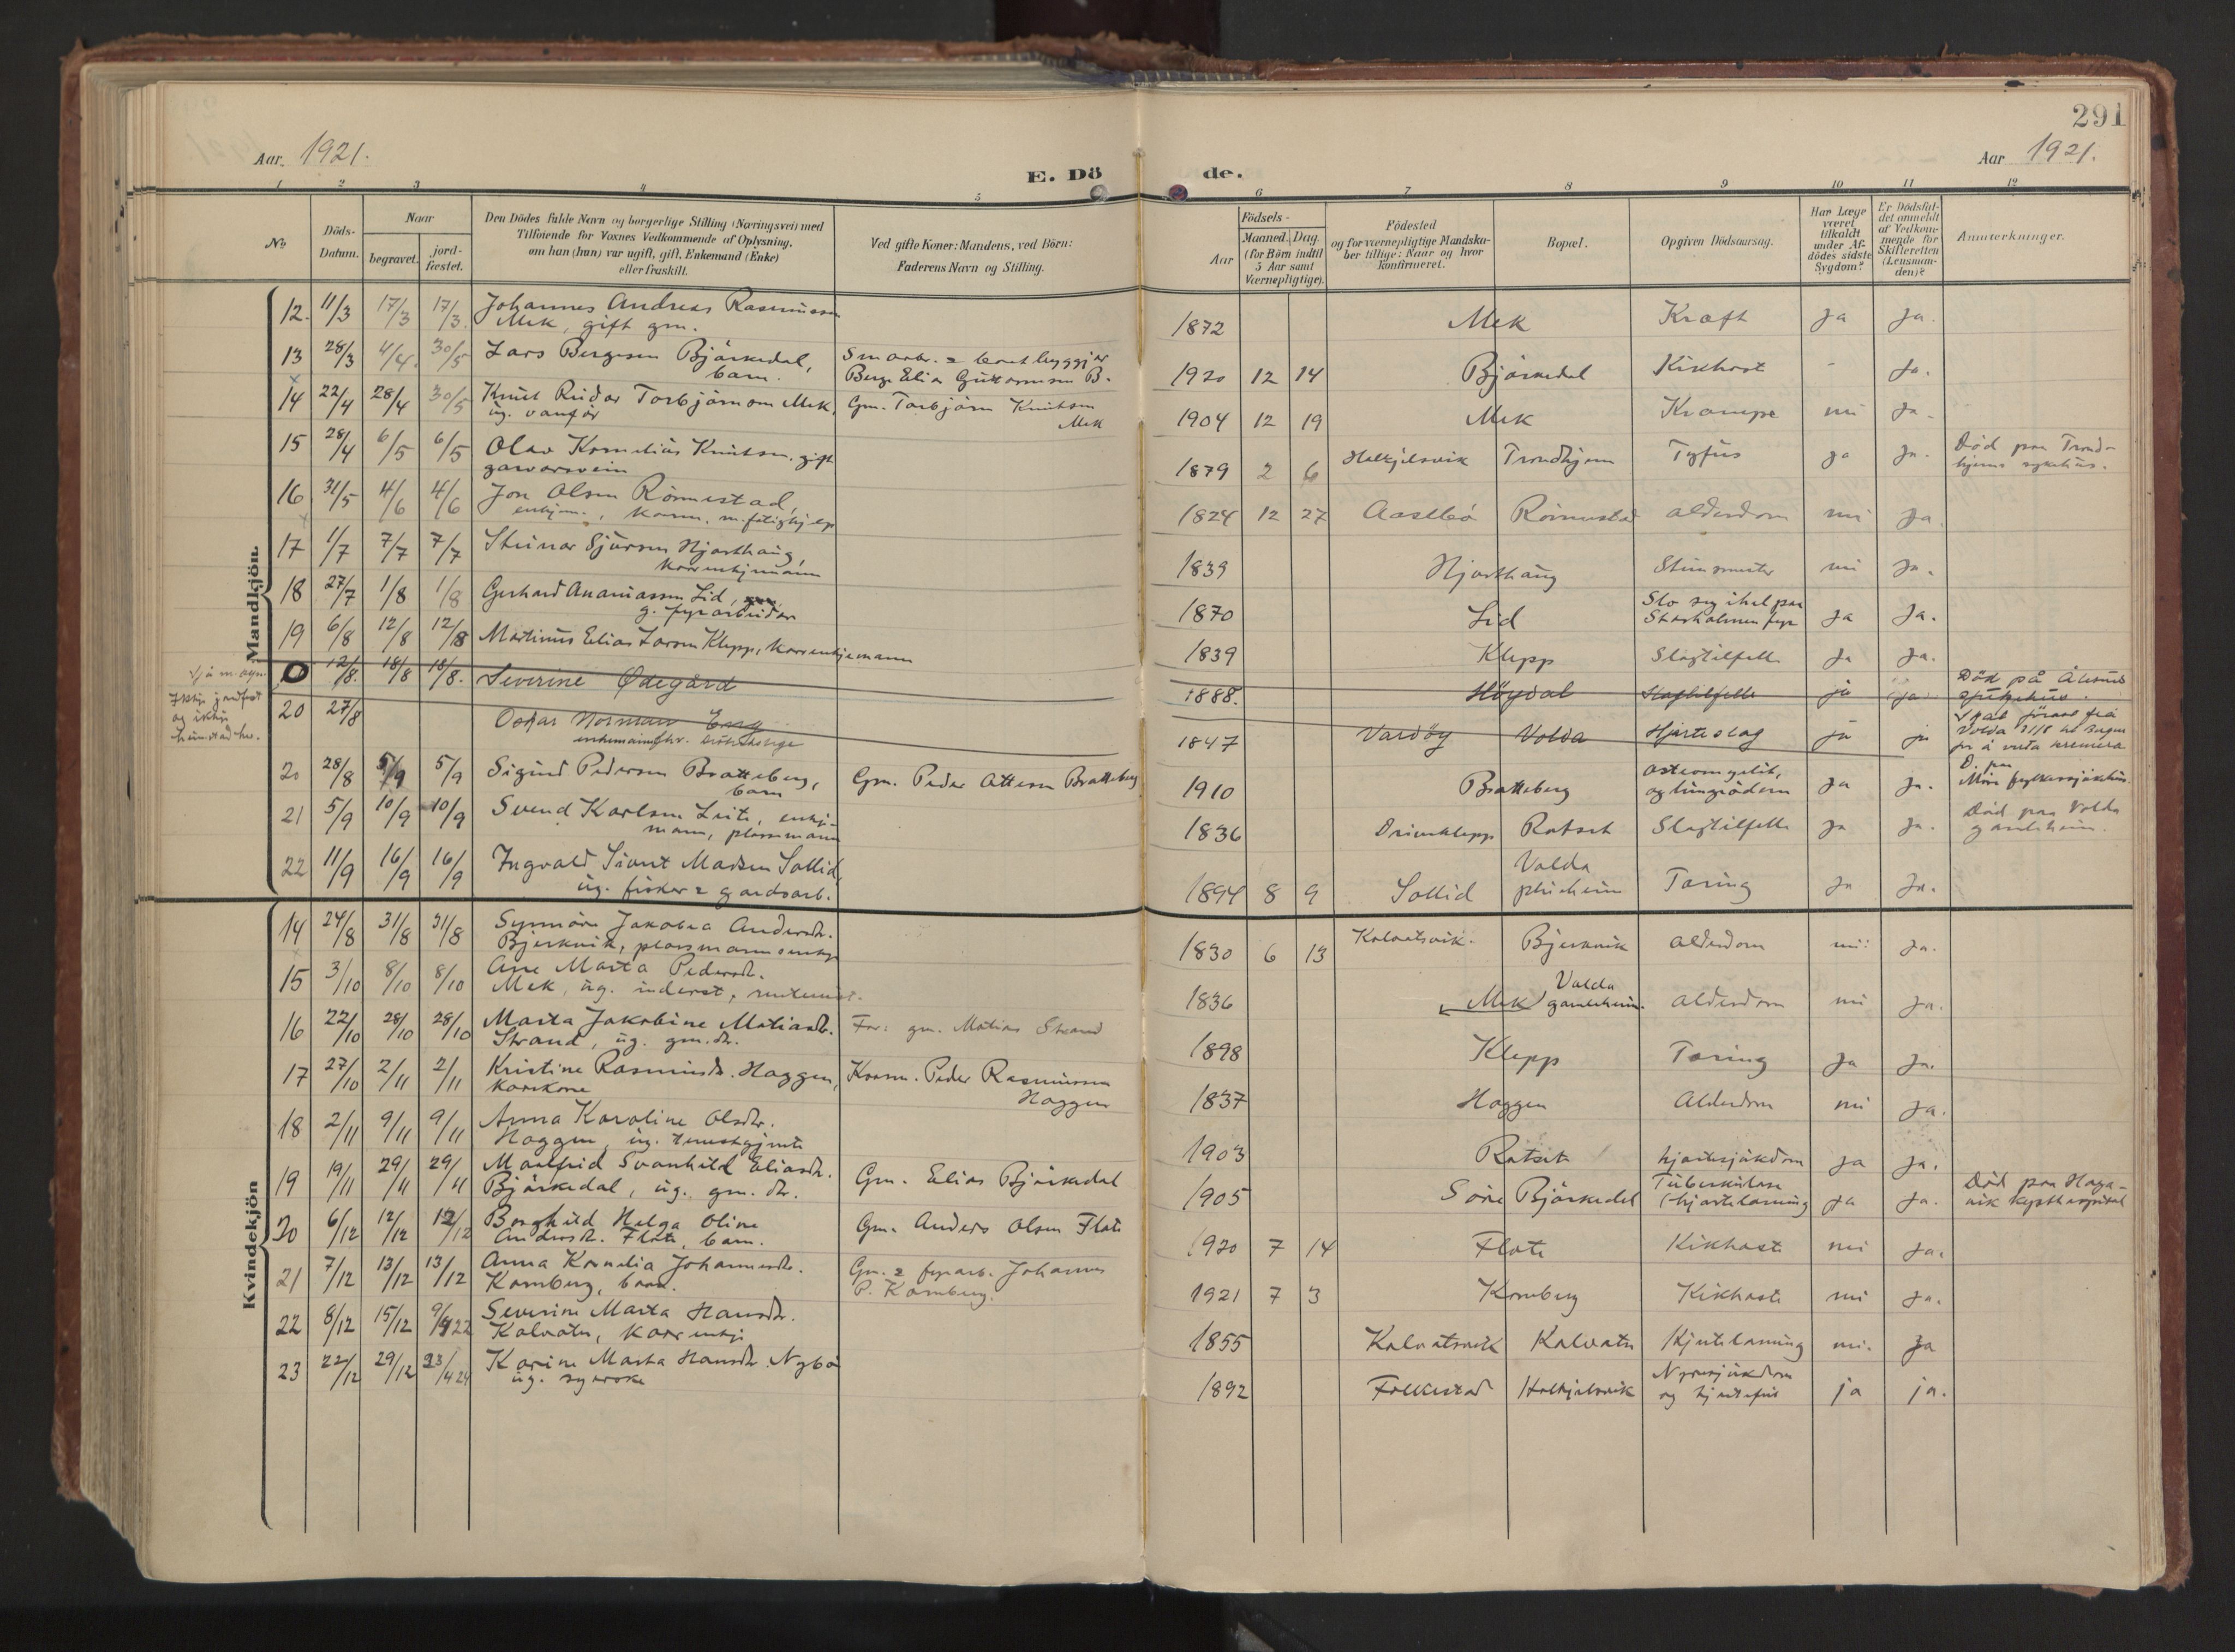 291
Aar 1921.
E. Döde.
Aar 1921.
1 2 3 4 5 6 7 8 9 10 11 12
No
Döds-Datum.
Naar
begravet.
jord-fæstet.
Den Dödes fulde Navn og borgerlige Stilling (Næringsvei) med
Tilföiende for Voxnes Vedkommende af Oplysning,
om han (hun) var ugift, gift, Enkemand (Enke)
eller fraskilt.
Ved gifte Koner: Mandens, ved Börn:
Faderens Navn og Stilling.
Födsels-
Aar
Maaned. Dag.
(for Börn indtil
5 Aar samt
Værnepligtige).
Födested
og for værnepligtige Mandska-
ber tillige: Naar og hvor
konfirmeret.
Bopæl.
Opgiven Dödsaarsag.
Har Læge
været
tilkaldt
under Af-
dödes sidste
Sygdom?
Er Dödsfal-
det anmeldt
af Vedkom-
mende for
Skifteretten
(Lensman-
den)?
Anmærkninger.
Mandkjön.
12. 11/3 17/3 17/3. Johannes Andreas Rasmussen
Mek, gift gm.
1872 Mek Kræft Ja Ja.
13 28/3 4/4. 30/5 Lars Bergesen Bjärkedal,
barn.
Smaabr. & baatbyggjar
Berge Elias Guttormsen B.
1920 12 14 Bjärkedal Kikhost - Ja.
14 22/4 28/4 30/5 Knut Reidar Torbjörnson Mek,
ug. vanför
Gm. Torbjörn Knutson
Mek
1904 12 19 Mek Krampe nei Ja.
15 28/4 6/5 6/5 Olav Kornelius Knutson, gift
garvarsvein
1879 2 6 Helkjelsvik Trondhjem Tyfus ja Ja. Död paa Trond-
hjems sykehus.
16 31/5 4/6 4/6 Jon Olsen Rönnestad,
enkjem., kaarm. m. fatighjelp
1824 12 27 Aasebö Rönnestad alderdom nei Ja.
17 1/7 7/7 7/7 Steinar Sjursen Hjorthaug,
kaarenkjemann
1839 Hjorthaug Steinsmerter nei Ja.
18 27/7 1/8 1/8 Gerhard Ananiassen Lid,
g. fyrarbeidar
1870 Lid Slo seg ihel paa
Storholmen fyr Ja Ja.
19 6/8 12/8 12/8 Martinus Elias Larsen Klepp, kaarenkjemann
1839 Klepp Slagtilfelle Ja Ja.
0 12/8. 18/8 18/8. Severine Ødegård
1888. Höydal Slagtilfelle ja (ja) Död på Ålesund
sjukehus.
Ikkje jordfest
og ikkje
20 27/8 Oskar Norman
1847 Vardöy Volda Hjarteslag ja ja
Volda 31/8 til Bergen
for å verta kremera
20 28/8 5/9 5/9 Sigurd Pedersen Bratteberg,
barn
Gm. Peder Ottesen Bratteberg
1910 Bratteberg osteomyelit,
og lungeödem Ja Ja. D. paa
Möre fylkessjukehus.
21 5/9 10/9 10/9 Svend Karlsen Leite, enkje-
mann, plassmann
1836 Drivaklepp Rotset Slagtilfelle Ja Ja. Död paa Volda
gamleheim.
22 11/9 16/9 16/9 Ingvald Sivert Madsen Sollid,
ug. fisker & gardsarb.
1894 8 9 Sollid Volda
pleieheim Tæring Ja Ja.
Kvindekjön
14 24/8 31/8 31/8 Synnöve Jakobea Andersdr.
Bjerkvik, plassmannsenkje
1830 6 13 Kalvatsvik. Bjerkvik alderdom nei Ja.
15 3/10 8/10 8/10 Ane Marta Pedersdr.
Mek, ug. inderst,
1836 Mek Volda
gamleheim. alderdom nei Ja.
16 22/10 28/10 28/10 Marta Jakobine Matiasdr.
Strand, ug. gm. dr.
Far: gm. Matias Strand
1898 Klepp Tæring Ja Ja.
17 27/10 2/11 2/11 Kristine Rasmusdr. Haggen,
kaarkone
Kaarm. Peder Rasmussen
Haggen
1837 Haggen Alderdom nei Ja.
18 2/11 9/11 9/11 Anna Karoline Olsdtr.
Haggen, ug. tenestgjente
1903 Rotset hjartesjukdom Ja Ja.
19 19/11 29/11 29/11 Maalfrid Svanhild Eliasdr.
Bjärkedal, ug. gm. dr.
Gm. Elias Bjärkedal
1905 Söre Bjärkedal Tuberkulose
(hjartelaming) Ja Ja. Död paa Haga-
vik kysthospital
20 6/12 12/12 12/12 Borghild Helga Oline
Andersdr. Flote, barn.
Gm. Anders Olsen Flote
1920 7 14 Flote Kikhoste nei Ja.
21 7/12 13/12 13/12 Anna Kornelia Johannesdr.
Kornberg, barn.
Gm. & fyrarb. Johannes
P. Kornberg.
1921 7 3 Kornberg Kikhoste nei Ja.
22 8/12 15/12 9/4 22 Severine Marta Hansdr.
Kalvatn, kaarenkje
1855 Kalvatsvik Kalvatn Hjartelaming nei. Ja
23 22/12 29/12 23/4 24 Karine Marta Hansdr. Nybö
ug. syerske
1892 Folkestad Helkjelsvik Nyresjukdom
og hjartefeil ja ja.